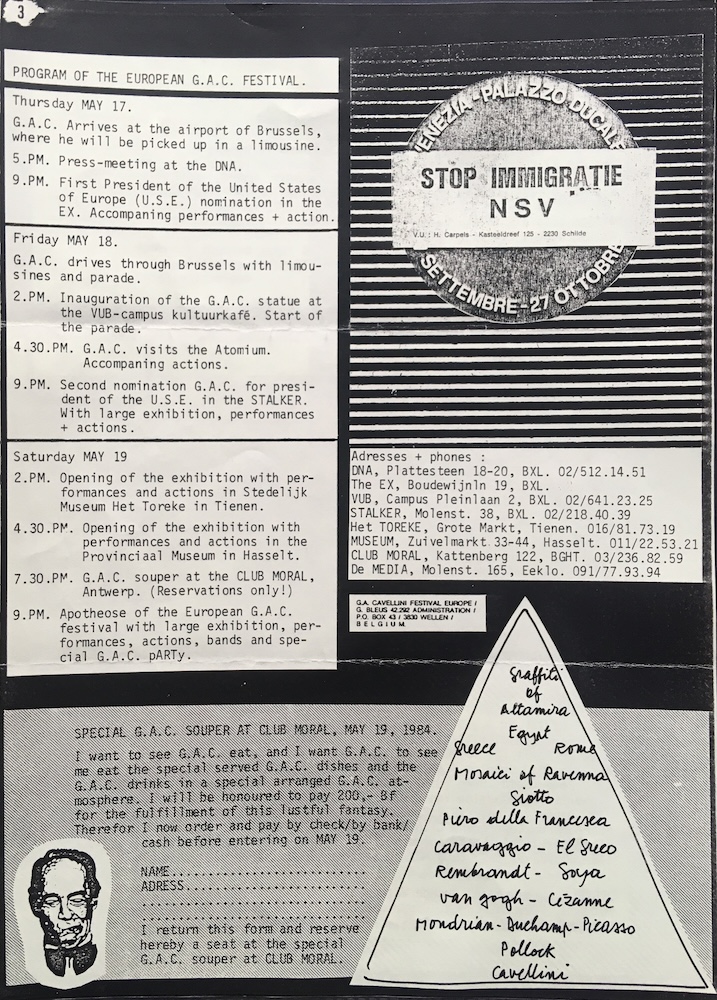 3
PROGRAM OF THE EUROPEAN G.A.C. FESTIVAL.
Thursday MAY 17.
G.A.C. Arrives at the airport of Brussels,
where he will be picked up in a limousine.
5.PM. Press-meeting at the DNA.
9.PM. First President of the United States
of Europe (U.S.E.) nomination in the
EX. Accompaning performances + action.
Friday MAY 18.
G.A.C. drives through Brussels with limou-
sines and parade.
2.PM. Inauguration of the G.A.C. statue at
the VUB-campus kultuurkafé. Start of
the parade.
4.30.PM. G.A.C. visits the Atomium.
Accompaning actions.
9.PM. Second nomination G.A.C. for presi-
dent of the U.S.E. in the STALKER.
With large exhibition, performances
+ actions.
Saturday MAY 19
2.PM. Opening of the exhibition with per-
formances and actions in Stedelijk
Museum Het Toreke in Tienen.
4.30.PM. Opening of the exhibition with
performances and actions in the
Provinciaal Museum in Hasselt.
7.30.PM. G.A.C. souper at the CLUB MORAL,
Antwerp. (Reservations only!)
9.PM. Apotheose of the European G.A.C.
festival with large exhibition, per-
formances, actions, bands and spe-
cial G.A.C. pARTy.
VENEZIA-PALAZZO DUCALE
STOP IMMIGRATIE
NSV
V.U.: H. Carpels - Kasteeldreef 125 - 2230 Schilde
SETTEMBRE-27 OTTOBRE
Adresses + phones :
DNA, Plattesteen 18-20, BXL. 02/512.14.51
The EX, Boudewijnln 19, BXL.
VUB, Campus Pleinlaan 2, BXL. 02/641.23.25
STALKER, Molenst. 38, BXL. 02/218.40.39
Het TOREKE, Grote Markt, Tienen. 016/81.73.19
MUSEUM, Zuivelmarkt 33-44, Hasselt. 011/22.53.21
CLUB MORAL, Kattenberg 122, BGHT. 03/236.82.59
De MEDIA, Molenst. 165, Eeklo. 091/77.93.94
G.A. CAVELLINI FESTIVAL EUROPE /
G. BLEUS 42.292 ADMINISTRATION /
P.O. BOX 43 / 3830 WELLEN /
BELGIUM
SPECIAL G.A.C. SOUPER AT CLUB MORAL, MAY 19, 1984.
I want to see G.A.C. eat, and I want G.A.C. to see
me eat the special served G.A.C. dishes and the
G.A.C. drinks in a special arranged G.A.C. at-
mosphere. I will be honoured to pay 200,- Bf
for the fulfillment of this lustful fantasy.
Therefor I now order and pay by check/by bank/
cash before entering on MAY 19.
NAME............................
ADRESS..........................
................................
................................
I return this form and reserve
hereby a seat at the special
G.A.C. souper at CLUB MORAL.
Graffiti
of
Altamira
Egypt
Greece Rome
Mosaici of Ravenna
Giotto
Piero della Francesca
Caravaggio - El Greco
Rembrandt - Goya
van gogh - Cézanne
Mondrian - Duchamp - Picasso
Pollock
Cavellini